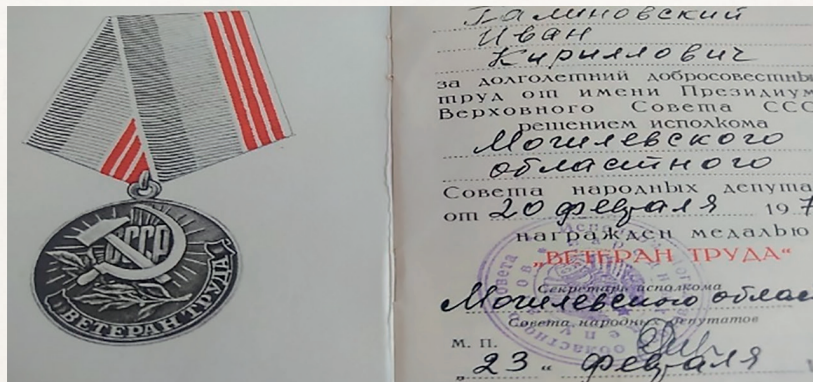 СССР
ВЕТЕРАН ТРУДА
Галиновский
Иван
Кириллович
за долголетний добросовестны
труд от имени Президиум
Верховного Совета ССС
решением исполкома
Могилевского
областного
Совета народных депута
от 20 февраля 197
награжден медалью
„ВЕТЕРАН ТРУДА“
Секретарь исполкома
Могилевского облас
Совета народных депутатов
М. П.
„23“ февраля 1